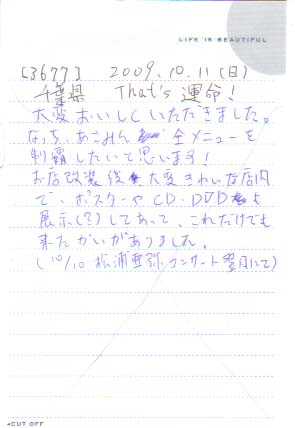 LIFE IS BEAUTIFUL
[3677] 2009.10.11(日)
千葉県 That's 運命!
大変おいしくいただきました。
なっち、あさみん 全メニューを
制覇したいと思います!
お店改装後 大変きれいな店内
で、ポスターやCD・DVDも
展示(?)してあって、これだけでも
来たかいがありました。
(10/10 松浦亜弥コンサート翌日にて)
◂CUT OFF